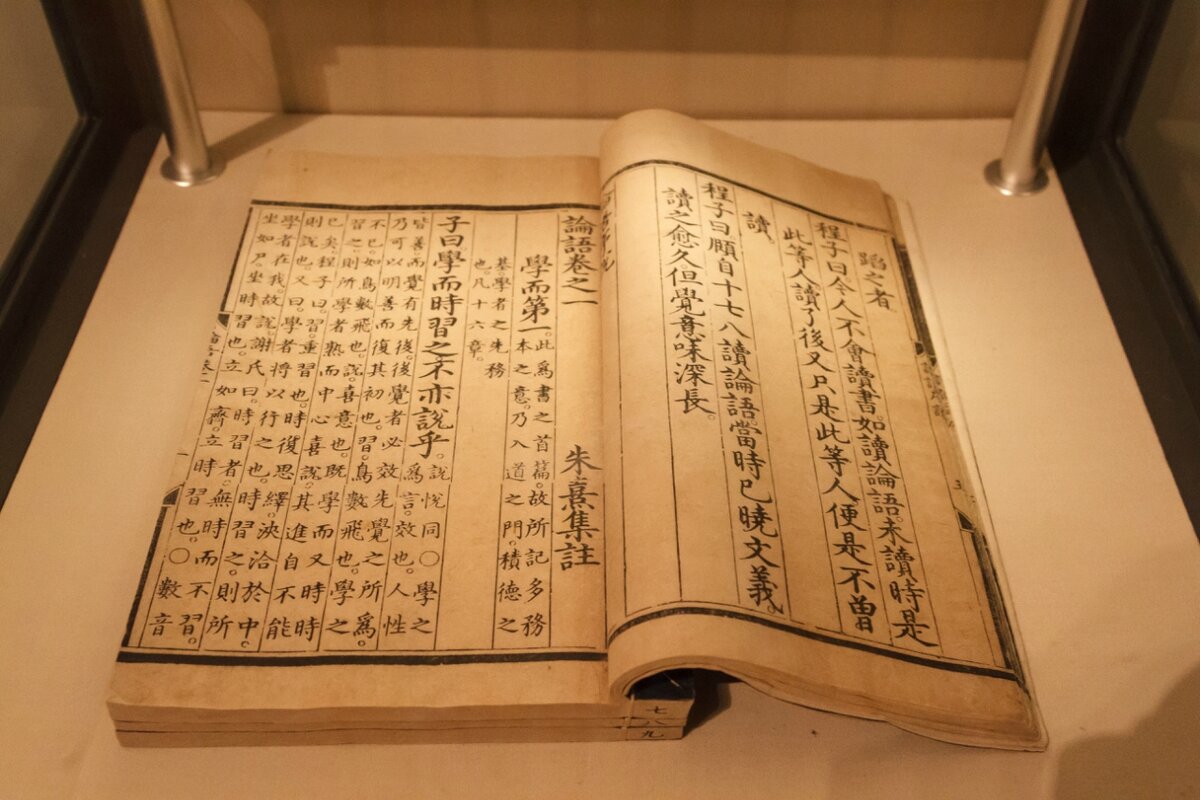 蹈之者
程子曰今人不會讀書。如讀論語。未讀時是
此等人讀了後又只是此等人便是不曾
讀。
程子曰頤自十七八讀論語。當時已曉文義。
讀之愈久但覺意味深長。
論語卷之一 朱熹集註
學而第一。此爲書之首篇。故所記多務
本之意。乃入道之門。積德之
基。學者之先務
也。凡十六章。
子曰學而時習之不亦說乎。說悅同○學之
爲言。效也。人性
皆善而覺有先後。後覺者必效先覺之所爲。
乃可以明善而復其初也。習。鳥數飛也。學之
不已。如鳥數飛也。說。喜意也。既學而又時時
習之。則所學者熟而中心喜說。其進自不能
已矣。程子曰。習。重習也。時復思繹。浹洽於中。
則說也。又曰。學者將以行之也。時習之。則所
學者在我。故說。謝氏曰。時習者。無時而不習。
坐如尸。坐時習也。立如齊。立時習也。○數音
七
八
九